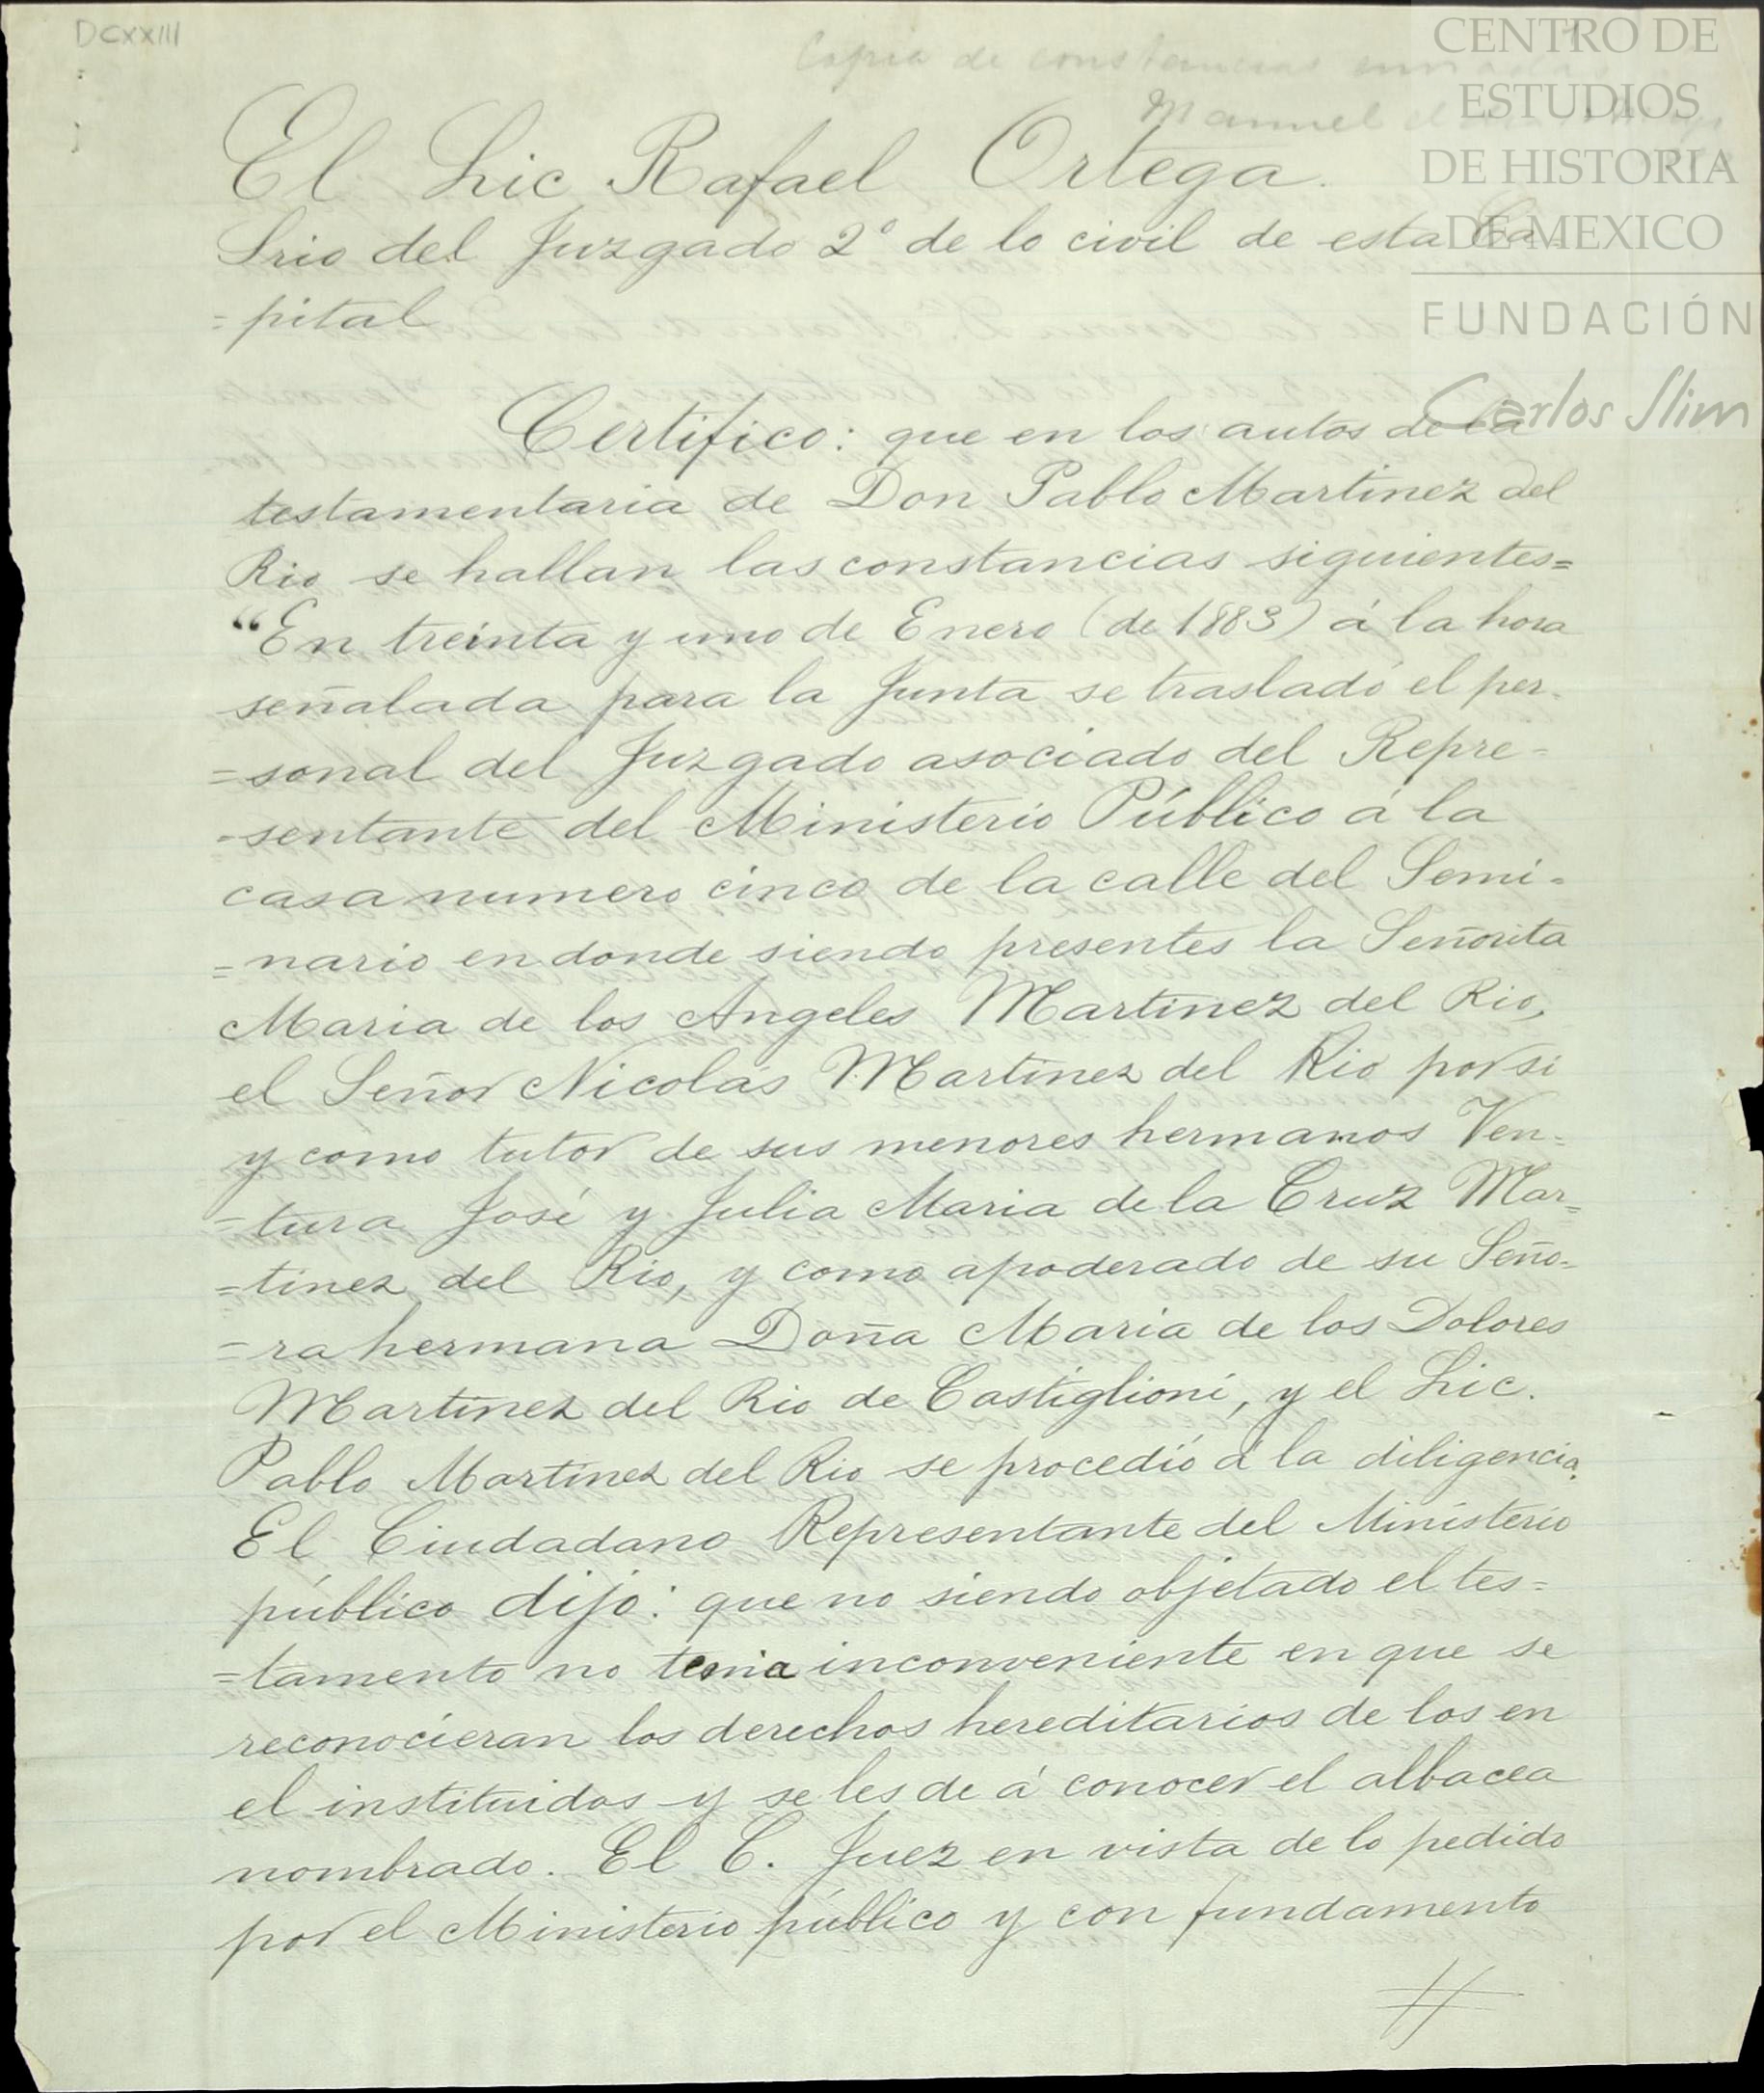 DCXXIII
Copia de constancias
Manuel
CENTRO DE
ESTUDIOS
DE HISTORIA
DE MEXICO
FUNDACIÓN
Carlos Slim
El Lic Rafael Ortega.
Srio del Juzgado 2º de lo civil de esta Ca-
=pital
Certifico: que en los autos de la
testamentaria de Don Pablo Martinez del
Rio se hallan las constancias siguientes=
"En treinta y uno de Enero (de 1883) á la hora
señalada para la Junta se trasladó el per-
=sonal del Juzgado asociado del Repre=
-sentante del Ministerio Público á la
casa numero cinco de la calle del Semi=
=nario en donde siendo presentes la Señorita
Maria de los Angeles Martinez del Rio,
el Señor Nicolás Martinez del Rio por si
y como tutor de sus menores hermanos Ven=
=tura José y Julia Maria de la Cruz Mar=
=tinez del Rio, y como apoderado de su Seño=
=ra hermana Doña Maria de los Dolores
Martinez del Rio de Castiglioni, y el Lic.
Pablo Martinez del Rio se procedió á la diligencia.
El Ciudadano Representante del Ministerio
público dijo: que no siendo objetado el tes=
=tamento no tenia inconveniente en que se
reconocieran los derechos hereditarios de los en
el instituidos y se les de á conocer el albacea
nombrado. El C. Juez en vista de lo pedido
por el Ministerio público y con fundamento